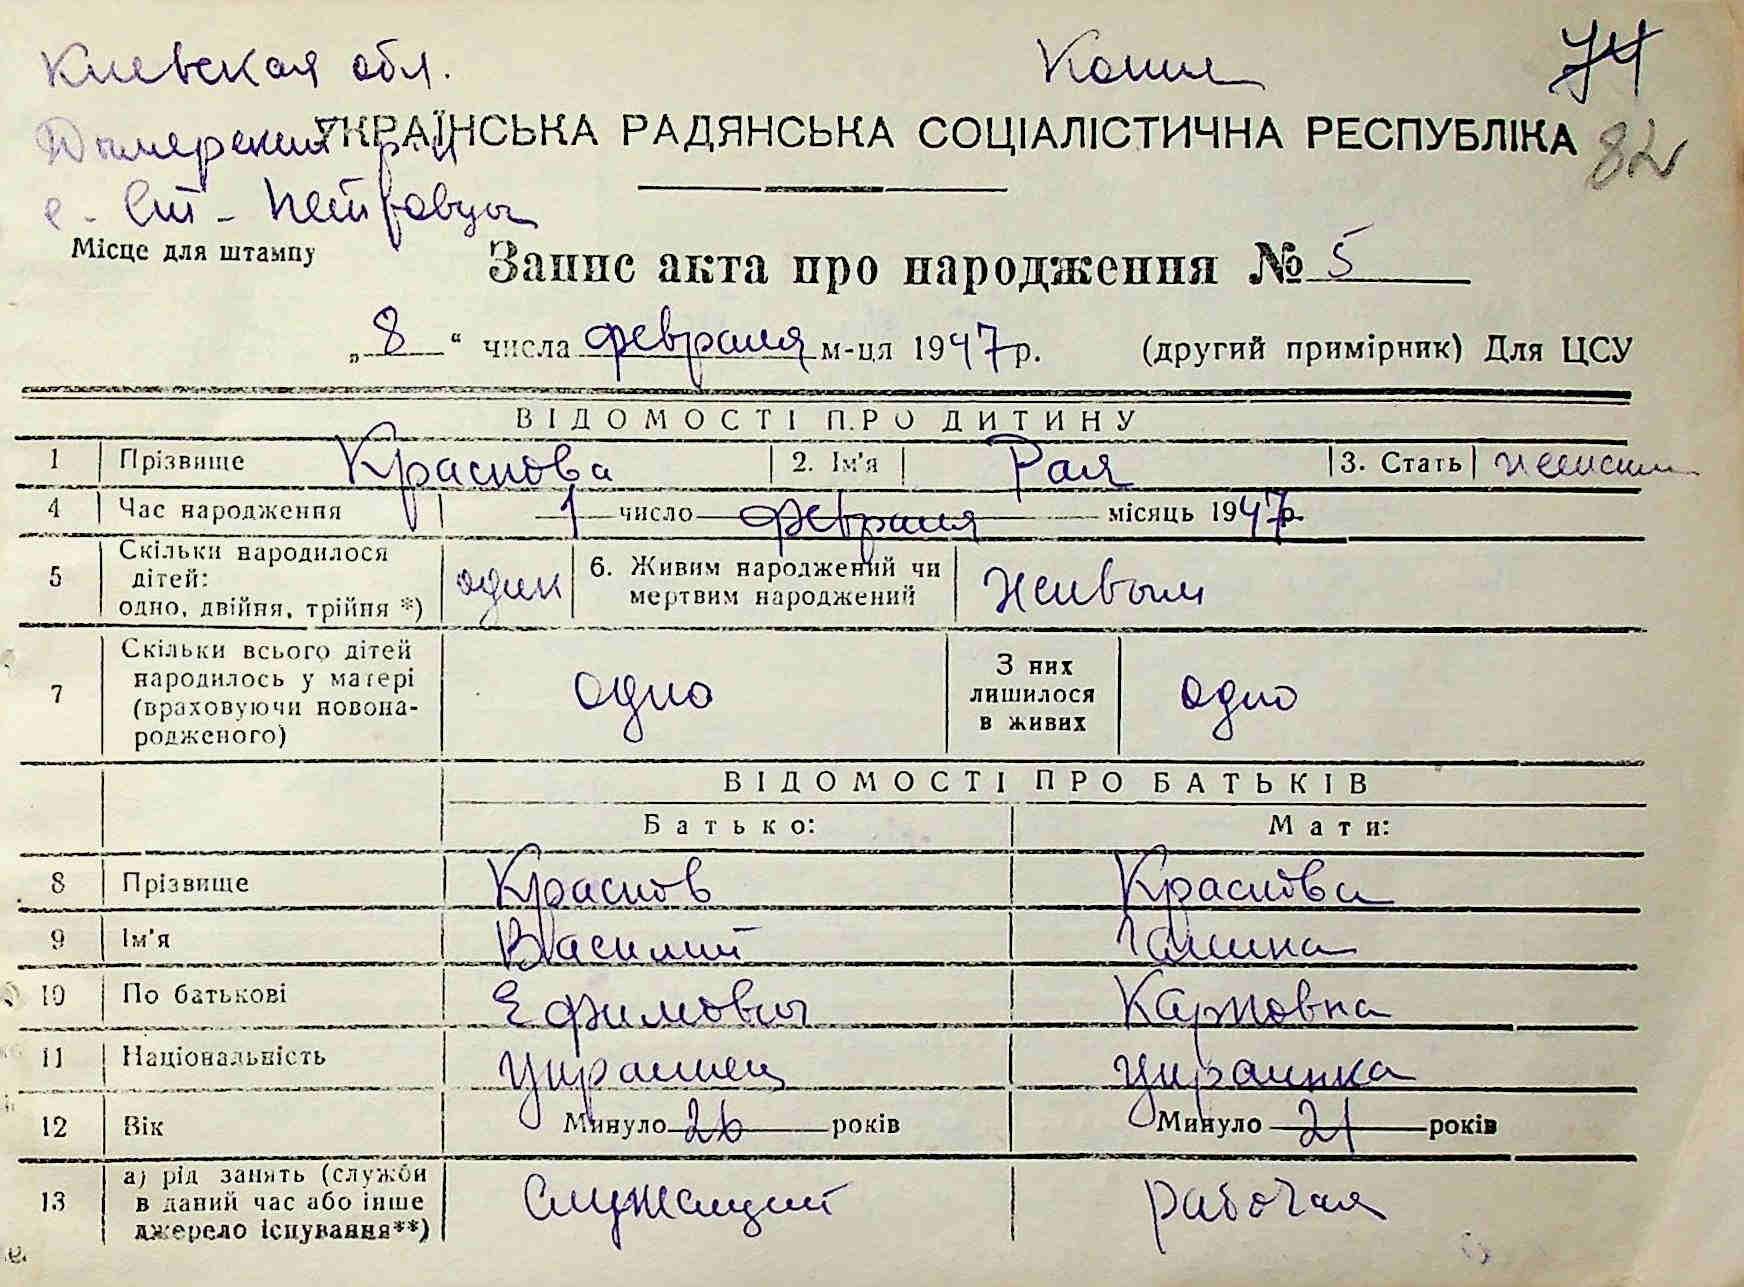 Киевская обл. Копия 74
УКРАЇНСЬКА РАДЯНСЬКА СОЦІАЛІСТИЧНА РЕСПУБЛІКА
Дымерский р-н 82
с. Ст-Петровцы
Місце для штампу
Запис акта про народження № 5
„8“ числа февраля м-ця 1947р. (другий примірник) Для ЦСУ
ВІДОМОСТІ ПРО ДИТИНУ
1 Прізвище Краснова 2. Ім'я Рая 3. Стать женский
4 Час народження 1 число февраля місяць 1947р.
5 Скільки народилося дітей: одно, двійня, трійня *) один 6. Живим народжений чи мертвим народжений живым
7 Скільки всього дітей народилось у матері (враховуючи новонародженого) одно З них лишилося в живих одно
ВІДОМОСТІ ПРО БАТЬКІВ
Батько: Мати:
8 Прізвище Краснов Краснова
9 Ім'я Василий Галина
10 По батькові Ефимович Карповна
11 Національність Украинец Украинка
12 Вік Минуло 26 років Минуло 21 років
13 а) рід занять (служби в даний час або інше джерело існування**) Служащий рабочая